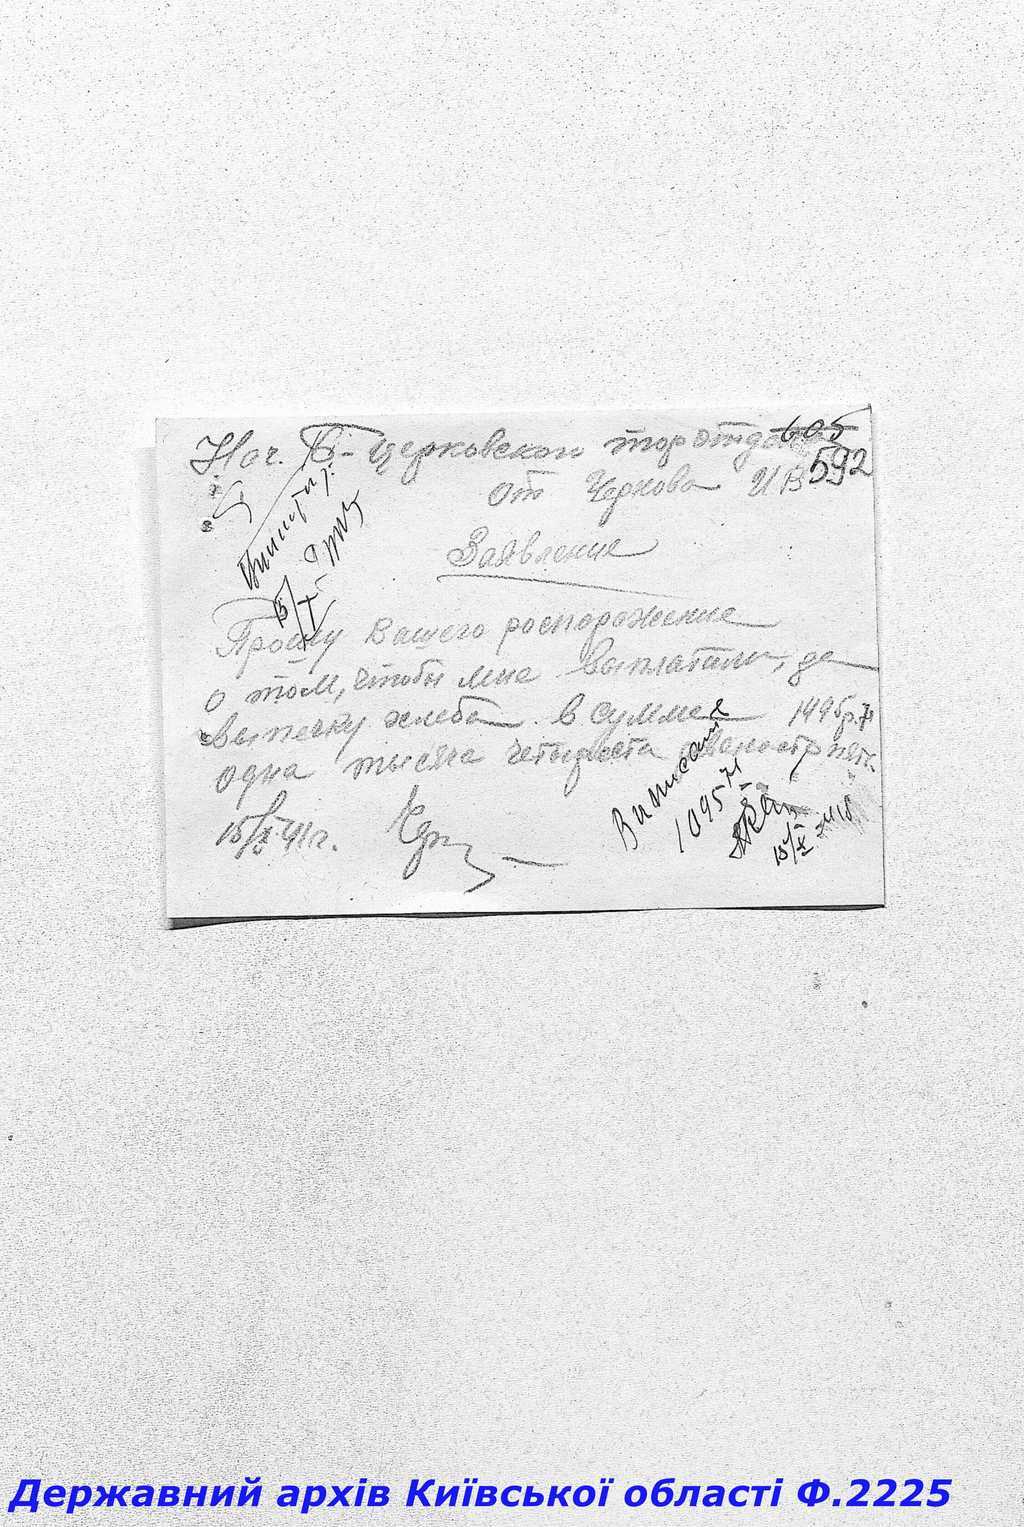 Нач. Б-церковской торотдела
605
592
от Чернова И В
Заявление
Прошу Вашего роспорожение
о том, чтобы мне выплатили, за
выпечку хлеба в сумме 1495р.
одна тысяча четыреста девяносто пять.
15/X 41г.
Виписати
1095
15/X
Державний архів Київської області Ф.2225